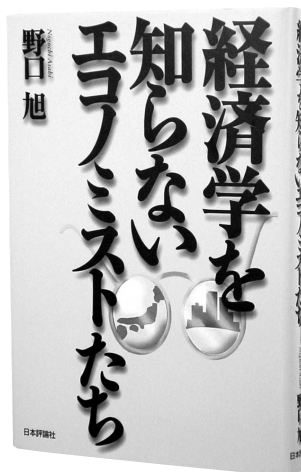 経済学を
知らない
エコノミストたち
野口 旭
Noguchi Asahi
日本評論社